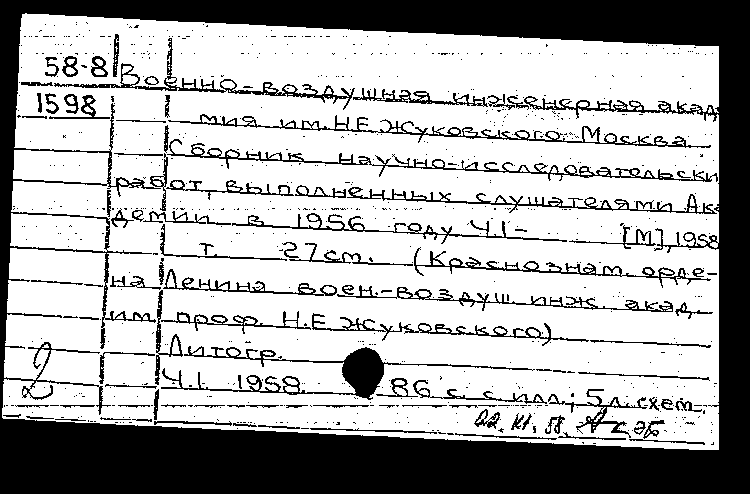 58-8 Военно-воздушная инженерная акад
1598
мия им. Н.Е. Жуковского. Москва.
Сборник научно-исследовательски
работ, выполненных слушателями Ак
демии в 1956 году. Ч.1- [М], 1958
т. 27cm. (Краснознам. орде-
на Ленина воен.-воздуш. инж. акад.
им. проф. Н.Е. Жуковского)
Литогр.
Ч.1. 1958. 86 с. с илл.; 5 л. схем.
2
22. XI. 58.